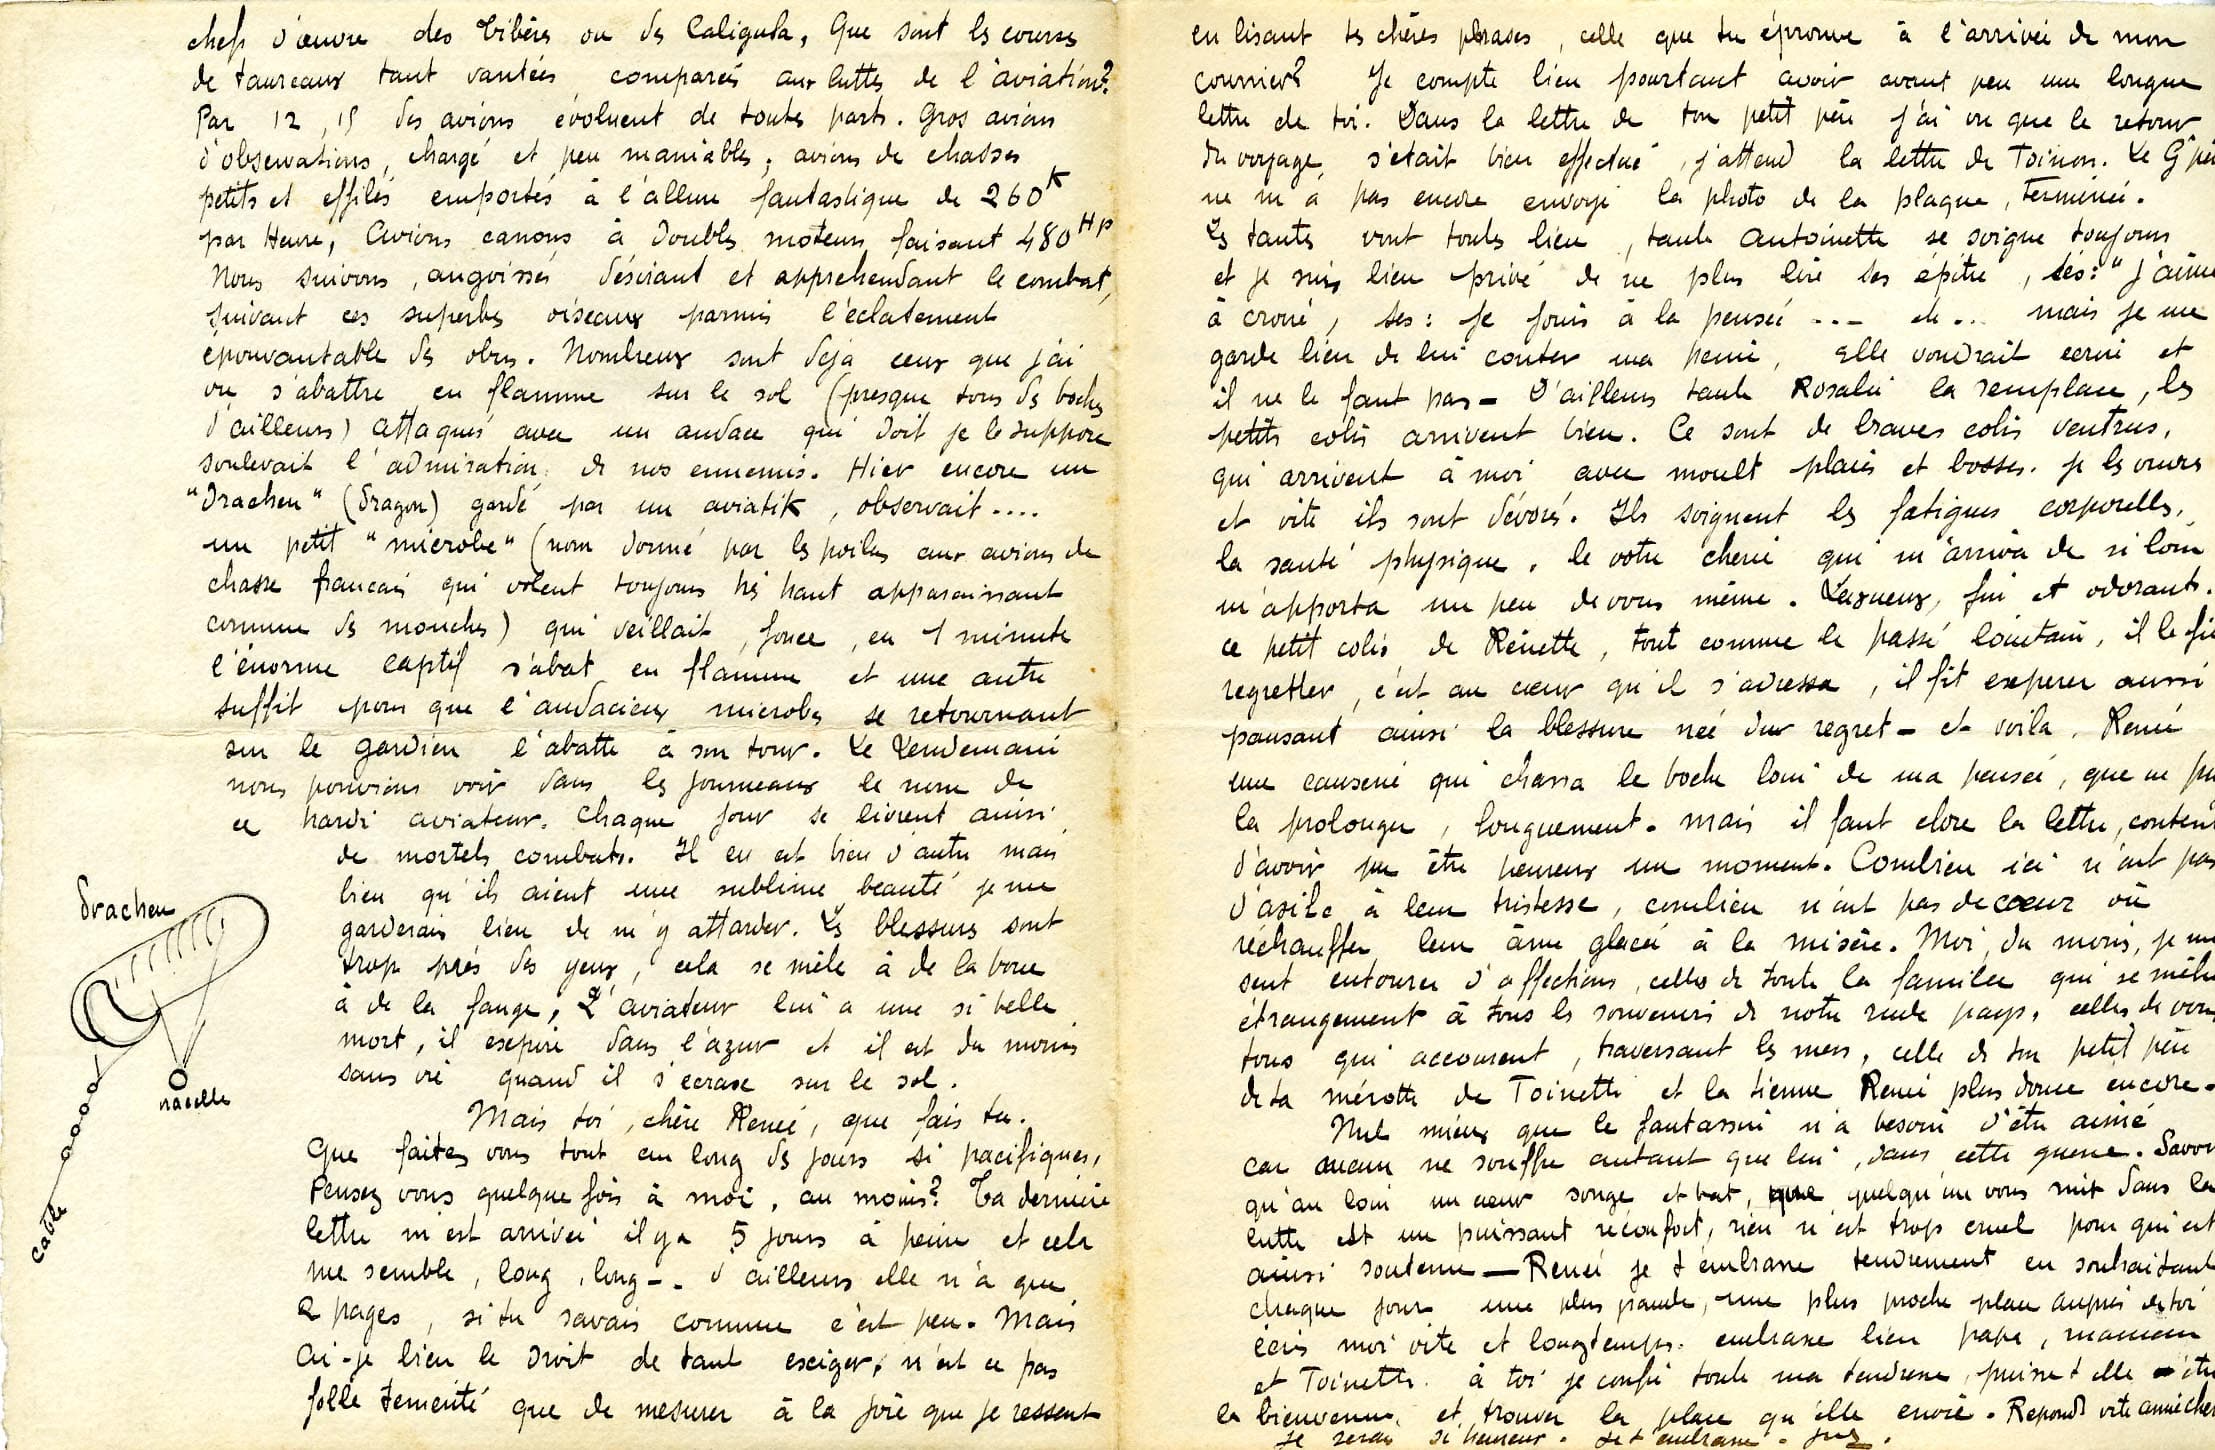 chefs d'œuvre des Tibère ou des Caligula, Que sont les courses
de taureaux tant vantées comparées aux luttes de l'aviation?
Par 12, 15 des avions évoluent de toutes parts. Gros avions
d'observations, chargé et peu maniables, avions de chasses
petits et effilés emportés à l'allure fantastique de 260K
par Heure, Avions canons à doubles moteurs faisant 480HP
Nous suivons, angoissés désirant et apprehendant le combat,
suivant ces superbes oiseaux parmis l'éclatement
épouvantable des obus. Nombreux sont déja ceux que j'ai
vu s'abattre en flamme sur le sol (presque tous des boches
d'ailleurs) attaqués avec un audace qui doit je le suppose
soulevait l'admiration de nos ennemis. Hier encore un
"Drachen" (dragon) gardé par un aviatik, observait....
un petit "microbe" (nom donné par les poilus aux avions de
chasse francais qui volent toujours très haut apparaissant
comme des mouches) qui veillait, fonce, en 1 minute
l'énorme captif s'abat en flamme et une autre
suffit pour que l'audacieux microbe se retournant
sur le gardien l'abatte à son tour. Le Lendemain
nous pouvions voir dans les journeaux le nom de
ce hardi aviateur. Chaque jour se livrent ainsi
de mortels combats. Il en est bien d'autre mais
bien qu'ils aient une sublime beauté je me
garderais bien de m'y attarder. Les blessures sont
trop près des yeux, cela se mèle à de la boue
à de la fange, L'aviateur lui a une si belle
mort, il expire dans l'azur et il est du moins
sans vie quand il s'écrase sur le sol.
Drachen
nacelle
cable
Mais toi, chère Renée, que fais tu.
Que faites vous tout au long des jours si pacifiques,
Pensez vous quelque fois à moi, au moins? Ta dernière
lettre m'est arrivée il y a 5 jours à peine et cela
me semble, long, long -. d'ailleurs elle n'a que
2 pages, si tu savais comme c'est peu. Mais
ai-je bien le droit de tant exiger, n'est ce pas
folle temérité que de mesurer à la joie que je ressent
en lisant tes chères phrases, celle que tu éprouve à l'arrivée de mon
courrier? Je compte bien pourtant avoir avant peu une longue
lettre de toi. Dans la lettre de ton petit père j'ai vu que le retour
du voyage s'était bien effectué, j'attend la lettre de Toinon. Le Gd père
ne m'a pas encore envoyé la photo de la plaque, terminée.
Les tantes vont toutes bien, tante Antoinette se soigne toujours
et je suis bien privé de ne plus lire ses épitre, ses: "j'aime
à croire, ses: je jouis à la pensée ... etc... mais je me
garde bien de lui conter ma peine, elle voudrait ecrire et
il ne le faut pas - D'ailleurs tante Rosalie la remplace, les
petits colis arrivent bien. Ce sont de braves colis ventrus,
qui arrivent à moi avec moult plaies et bosses. je les ouvres
et vite ils sont dévorés. Ils soignent les fatigues corporelles,
la santé physique, le votre cherie qui m'arriva de si loin
m'apporta un peu de vous même. Luxueux, fin et odorants.
ce petit colis de Rénette, tout comme le passé lointain, il le fit
regretter, c'est au cœur qu'il s'adressa, il fit esperer aussi
pansant ainsi la blessure née du regret - et voila, Renée
une causerie qui chassa le boche loin de ma pensée, que ne puis
la prolonger, longuement. mais il faut clore la lettre, content
d'avoir pu être heureux un moment. Combien ici n'ont pas
d'asile à leur tristesse, combien n'ont pas de cœur où
réchauffer leur âme glacée à la misère. Moi, du moins, je me
sent entourer d'affections, celles de toute la famille qui se mêlent
étrangement à tous les souvenirs de notre rude pays, celles de vous
tous qui accourent, traversant les mers, celle de ton petit père
de ta mérotte de Toinette et la tienne Renée plus douce encore.
Nul mieux que le fantassin n'a besoin d'être aimé
car aucun ne souffre autant que lui, dans cette guerre. Savoir
qu'au loin un cœur songe et bat, que quelqu'un vous suit dans la
lutte est un puissant réconfort, rien n'est trop cruel pour qui est
ainsi soutenu — Renée je t'embrasse tendrement en souhaitant
chaque jour une plus grande, une plus proche place auprès de toi
écris moi vite et longtemps. embrasse bien papa, maman
et Toinette. à toi je confie toute ma tendresse, puisse t elle être
la bienvenue, et trouver la place qu'elle envie. Reponds vite
je serai si heureux. je t'embrasse.